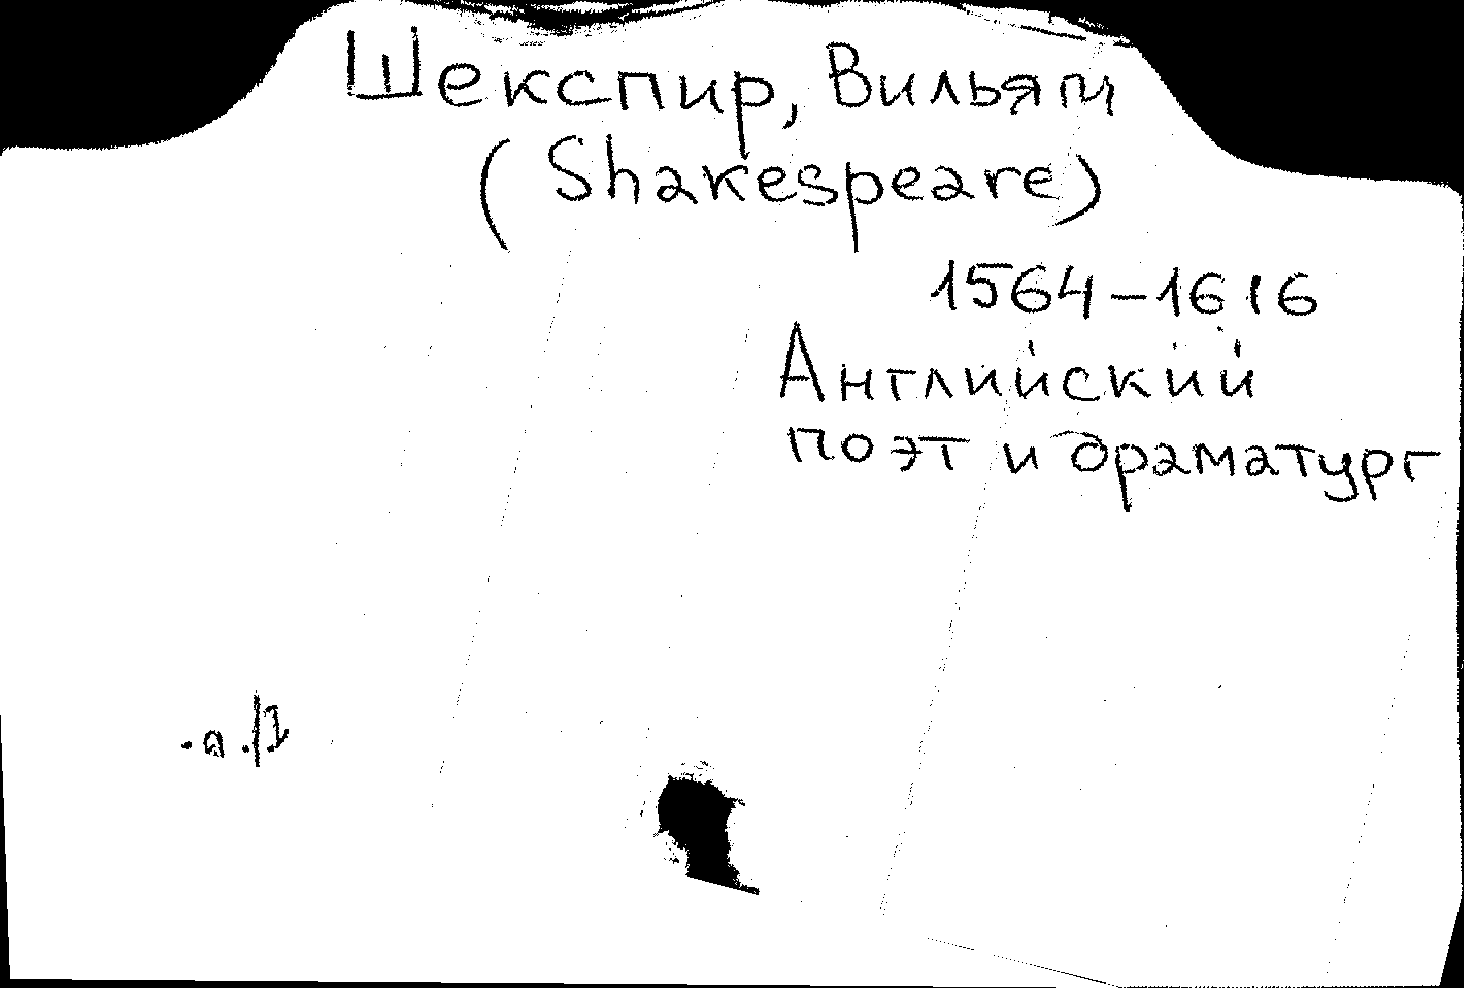 Шекспир, Вильям
(Shakespeare)
1564-1616
Английский
поэт и драматург